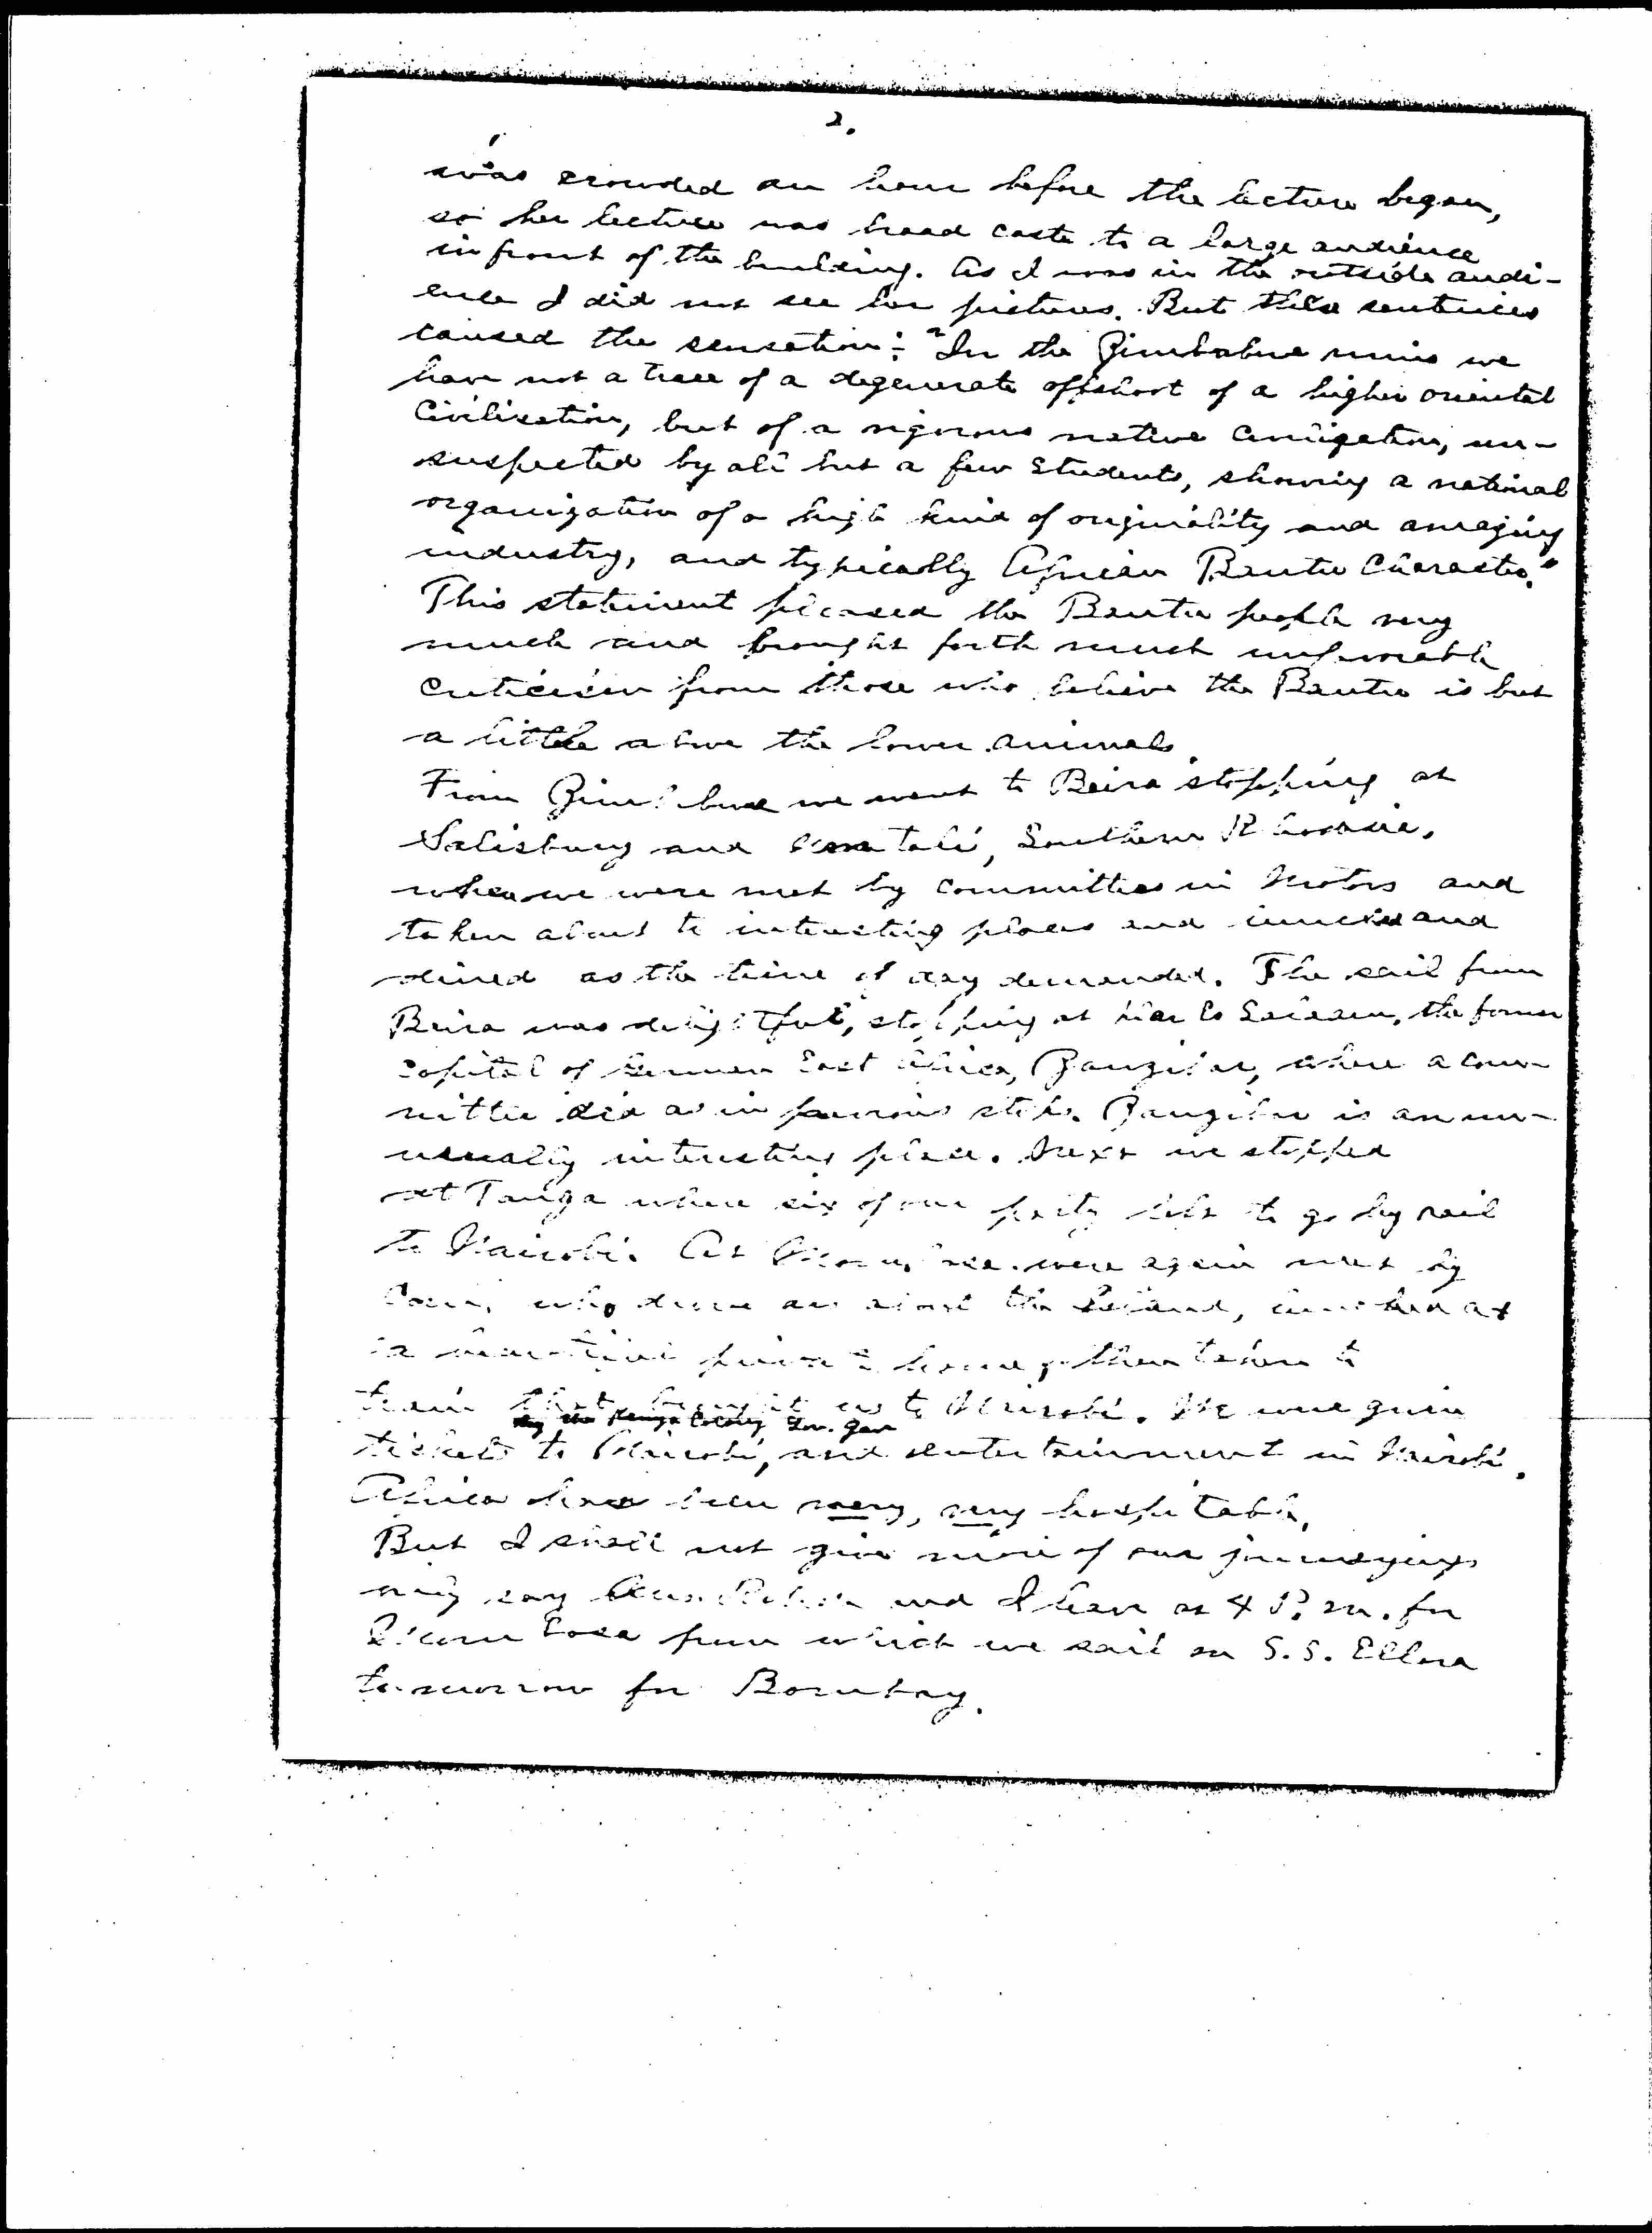 2.
was crowded an hour before the lecture began,
so her lecture was broad caste to a large audience
in front of the building. As I was in the outside audi-
ence I did not see her pictures. But these sentences
caused the sensation: "In the Zimbabwe ruins we
have not a trace of a degenerate offshoot of a higher oriental
Civilization, but of a vigorous native civilization, un-
suspected by all but a few students, showing a national
organization of a high kind of originality and amazing
industry, and typically African Bantu Character."
This statement pleased the Bantu people very
much and brought forth much unfavorable
criticism from those who believe the Bantu is but
a little above the lower animals.
From Zimbabwe we went to Beira stopping at
Salisbury and Umtali, Southern Rhodesia,
where we were met by committees in motors and
taken about to interesting places and lunched and
dined as the time of day demanded. The sail from
Beira was delightful, stopping at Dar Es Salaam, the former
capital of German East Africa, Zanzibar, where a com-
mittee did as in previous stops. Zanzibar is an un-
usually interesting place. Next we stopped
at Tanga where six of our party left to go by rail
to Nairobi. At we were again met by
Com. who drove us about the Island, lunched at
a private home, then taken to
train that brought us to Nairobi. We were given
by the Kenya Colony Gov. Gen
tickets to Nairobi, and entertainment in Nairobi.
Africa has been very, very hospitable.
But I shall not give more of our journeyings
only say and I leave at 4 P.M. for
from which we sail on S.S. Ellora
tomorrow for Bombay.